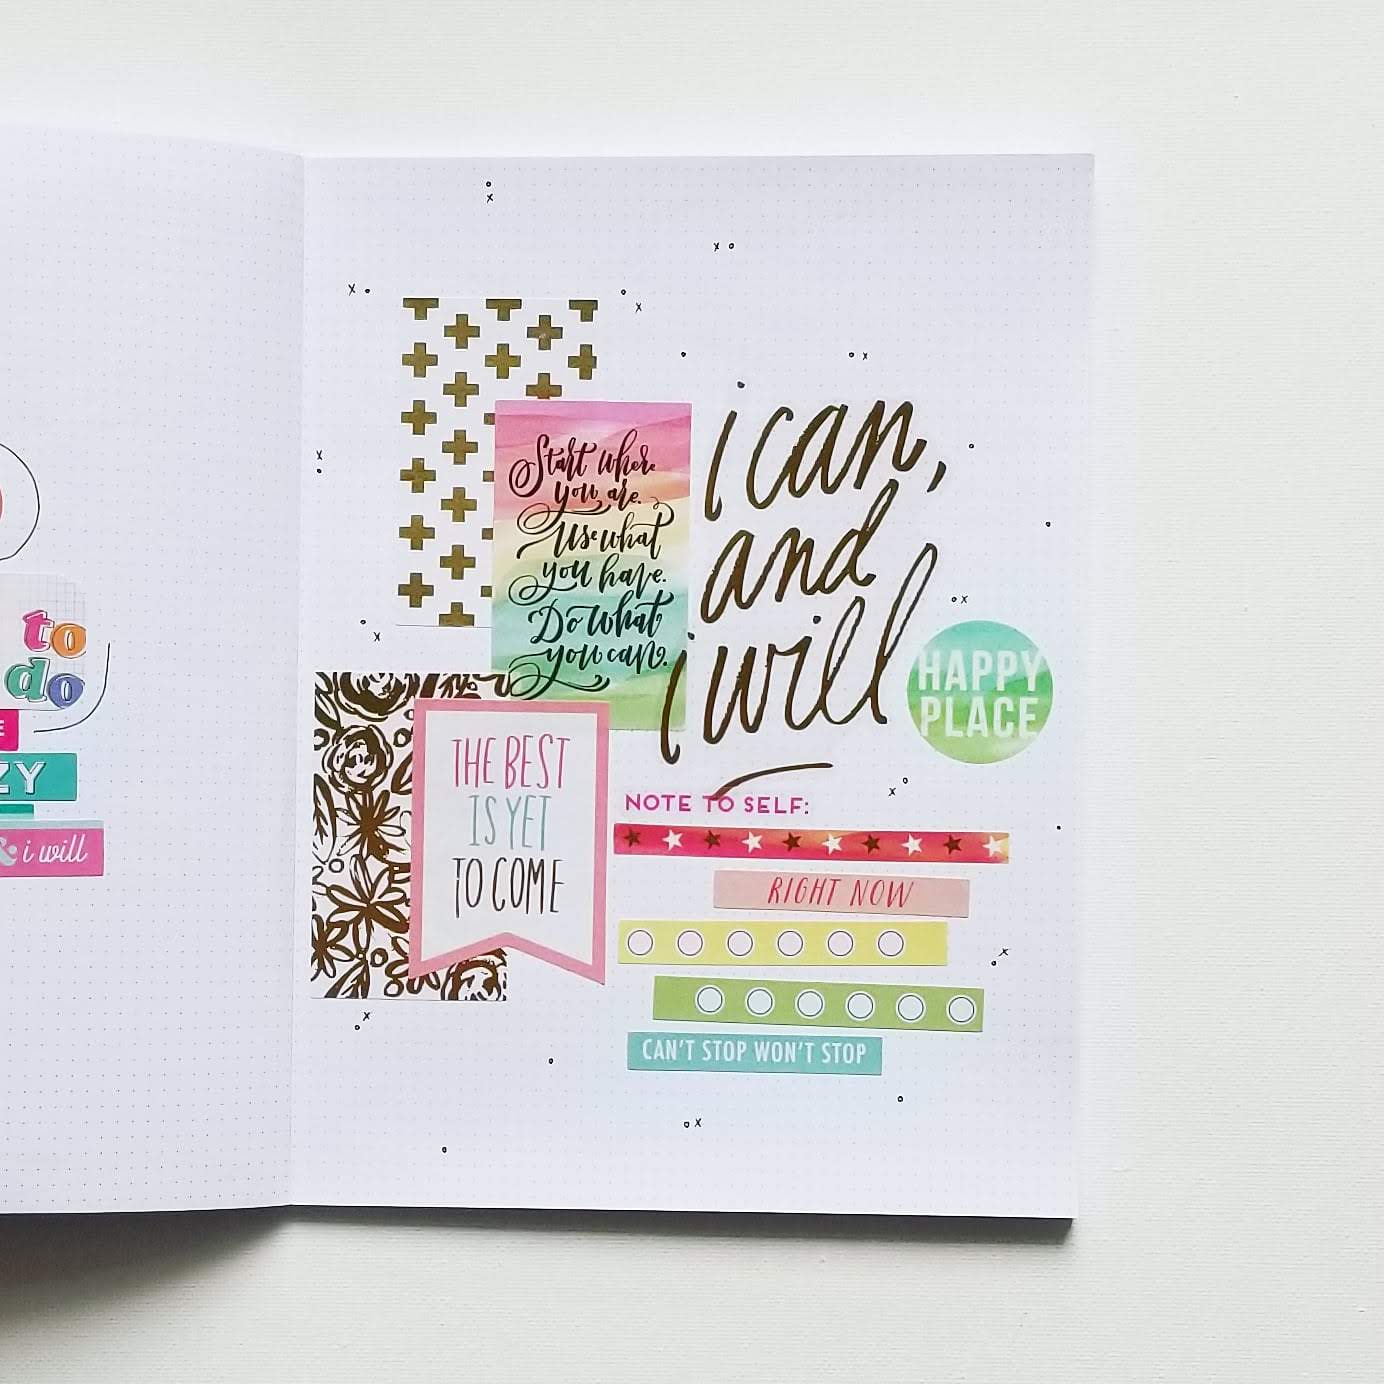 to
do
ZY
& i will
Start where
you are.
Use what
you have.
Do what
you can.
i can,
and
i will
HAPPY
PLACE
THE BEST
IS YET
TO COME
NOTE TO SELF:
RIGHT NOW
CAN'T STOP WON'T STOP